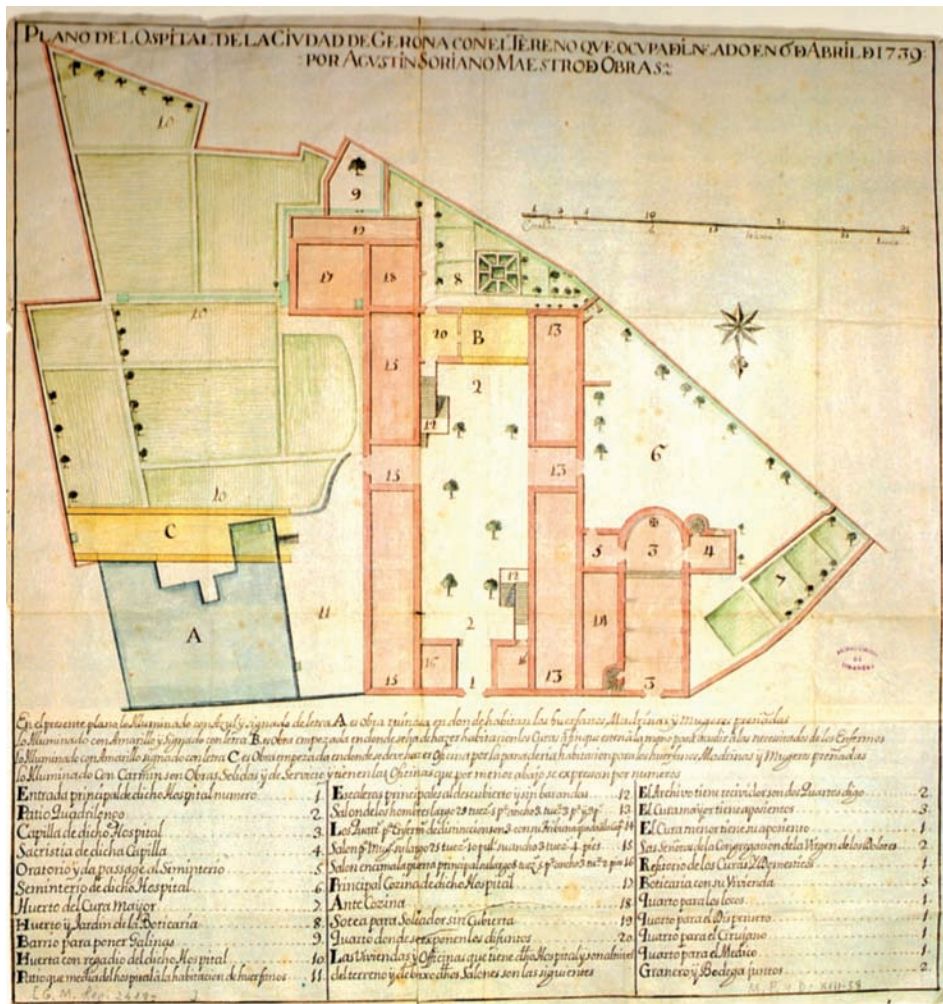 PLANO DEL OSPITAL DE LA CIVDAD DE GERONA CON EL TERENO QVE OCVPA DILNEADO EN 6 D ABRIL D 1739
POR AGVSTIN SORIANO MAESTRO D OBRAS
10
9
19
17
18
8
10
20
B
13
15
2
12
6
15
13
10
C
5
3
4
7
A
11
12
14
2
16
16
15
1
13
3
En el presente plano lo Illuminado con Azul y signado de letra A es obra ruinosa en donde habitan los huerfanos Madrinas y Mugeres preñadas
lo Illuminado con Amarillo y Signado con letra B es Obra empezada en donde se deja de hazer habitacion los Curas a fin que esten a la mano para acudir a las necesitados de los Enfermos
lo Illuminado con Amarillo signado con letra C es Obra empezada en donde se deve hacer Oficina por la panaderia habitacion para los huerfanos Madrinas y Mugeres preñadas
lo Illuminado Con Carmin son Obras Solidas y de Servicio y tienen las Oficinas que por menor abajo se expresan por numeros
Entrada principal de dicho Hospital numero 1
Patio Quadrilongo 2
Capilla de dicho Hospital 3
Sacristia de dicha Capilla 4
Oratorio y da passage al Siminterio 5
Seminterio de dicho Hospital 6
Huerto del Cura Mayor 7
Huerto y Jardin de la Boticaria 8
Barrio para poner Galinas 9
Huerta con regadio del dicho Hospital 10
Patio que media del hospital a la habitacion de huerfanos 11
Escaleras principales al descubierto y sin barandas 12
Salon de los hombres largo 13
Los Quart 14
Salon 15
Salon encima la puerta principal 16
Principal Cozina de dicho Hospital 17
Ante Cozina 18
Sotea para Soleador sin Cubierta 19
Quarto donde se exponen los difuntos 20
Las Viviendas y Officinas que tiene dho Hospital y son al nivel
del terreno y de bixo dhos Salones son las siguientes
El Archivo tiene recividor son dos Quartos digo 2
El Cura mayor tiene aposientos 3
El Cura menor tiene su aposiento 1
Las Señoras de la Congregacion de la Virgen de los Dolores 2
Refitorio de los Curas y Domesticos 1
Boticaria con su Vivienda 5
Quarto para los locos 1
Quarto para el Dispensero 1
Quarto para el Cirujano 1
Quarto para el Medico 1
Granero y Bodega juntos 2